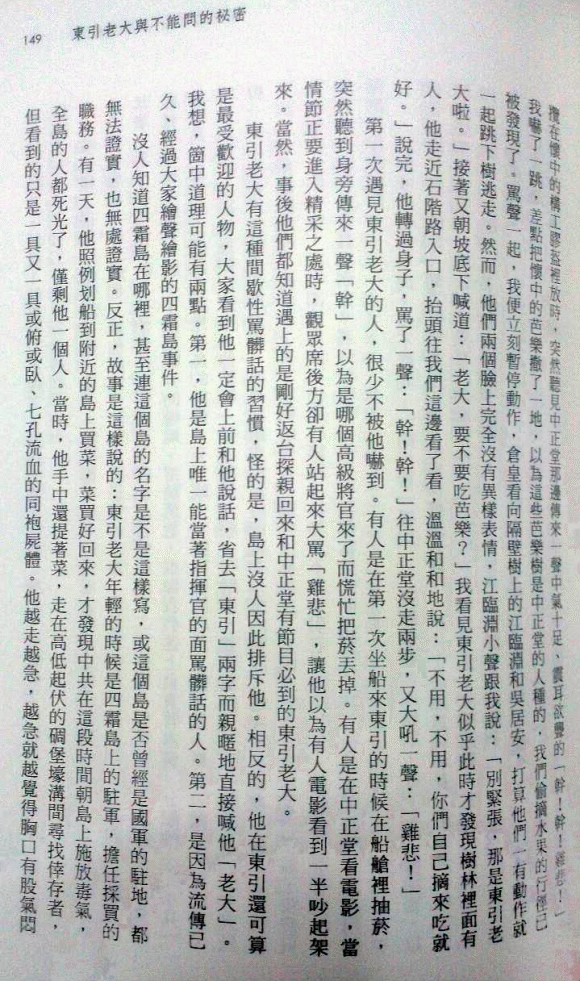 149
東引老大與不能問的秘密
攬在懷中的構工膠盔裡放時，突然聽見中正堂那邊傳來一聲中氣十足、震耳欲聾的「幹！幹！雞悲！」
我嚇了一跳，差點把懷中的芭樂撒了一地，以為這些芭樂樹是中正堂的人種的，我們偷摘水果的行徑已
被發現了。罵聲一起，我便立刻暫停動作，倉皇看向隔壁樹上的江臨淵和吳居安，打算他們一有動作就
一起跳下樹逃走。然而，他們兩個臉上完全沒有異樣表情，江臨淵小聲跟我說：「別緊張，那是東引老
大啦。」接著又朝坡底下喊道：「老大，要不要吃芭樂？」我看見東引老大似乎此時才發現樹林裡面有
人，他走近石階路入口，抬頭往我們這邊看了看，溫溫和和地說：「不用，不用，你們自己摘來吃就
好。」說完，他轉過身子，罵了一聲：「幹！幹！」往中正堂沒走兩步，又大吼一聲：「雞悲！」
第一次遇見東引老大的人，很少不被他嚇到。有人是在第一次坐船來東引的時候在船艙裡抽菸，
突然聽到身旁傳來一聲「幹」，以為是哪個高級將官來了而慌忙把菸丟掉。有人是在中正堂看電影，當
情節正要進入精采之處時，觀眾席後方卻有人站起來大罵「雞悲」，讓他以為有人電影看到一半吵起架
來。當然，事後他們都知道遇上的是剛好返台探親回來和中正堂有節目必到的東引老大。
東引老大有這種間歇性罵髒話的習慣，怪的是，島上沒人因此排斥他。相反的，他在東引還可算
是最受歡迎的人物，大家看到他一定會上前和他說話，省去「東引」兩字而親暱地直接喊他「老大」。
我想，箇中道理可能有兩點。第一，他是島上唯一能當著指揮官的面罵髒話的人。第二，是因為流傳已
久、經過大家繪聲繪影的四霜島事件。
沒人知道四霜島在哪裡，甚至連這個島的名字是不是這樣寫，或這個島是否曾經是國軍的駐地，都
無法證實，也無處證實。反正，故事是這樣說的：東引老大年輕的時候是四霜島上的駐軍，擔任採買的
職務。有一天，他照例划船到附近的島上買菜，菜買好回來，才發現中共在這段時間朝島上施放毒氣，
全島的人都死光了，僅剩他一個人。當時，他手中還提著菜，走在高低起伏的碉堡壕溝間尋找倖存者，
但看到的只是一具又一具或俯或臥、七孔流血的同袍屍體。他越走越急，越急就越覺得胸口有股氣悶